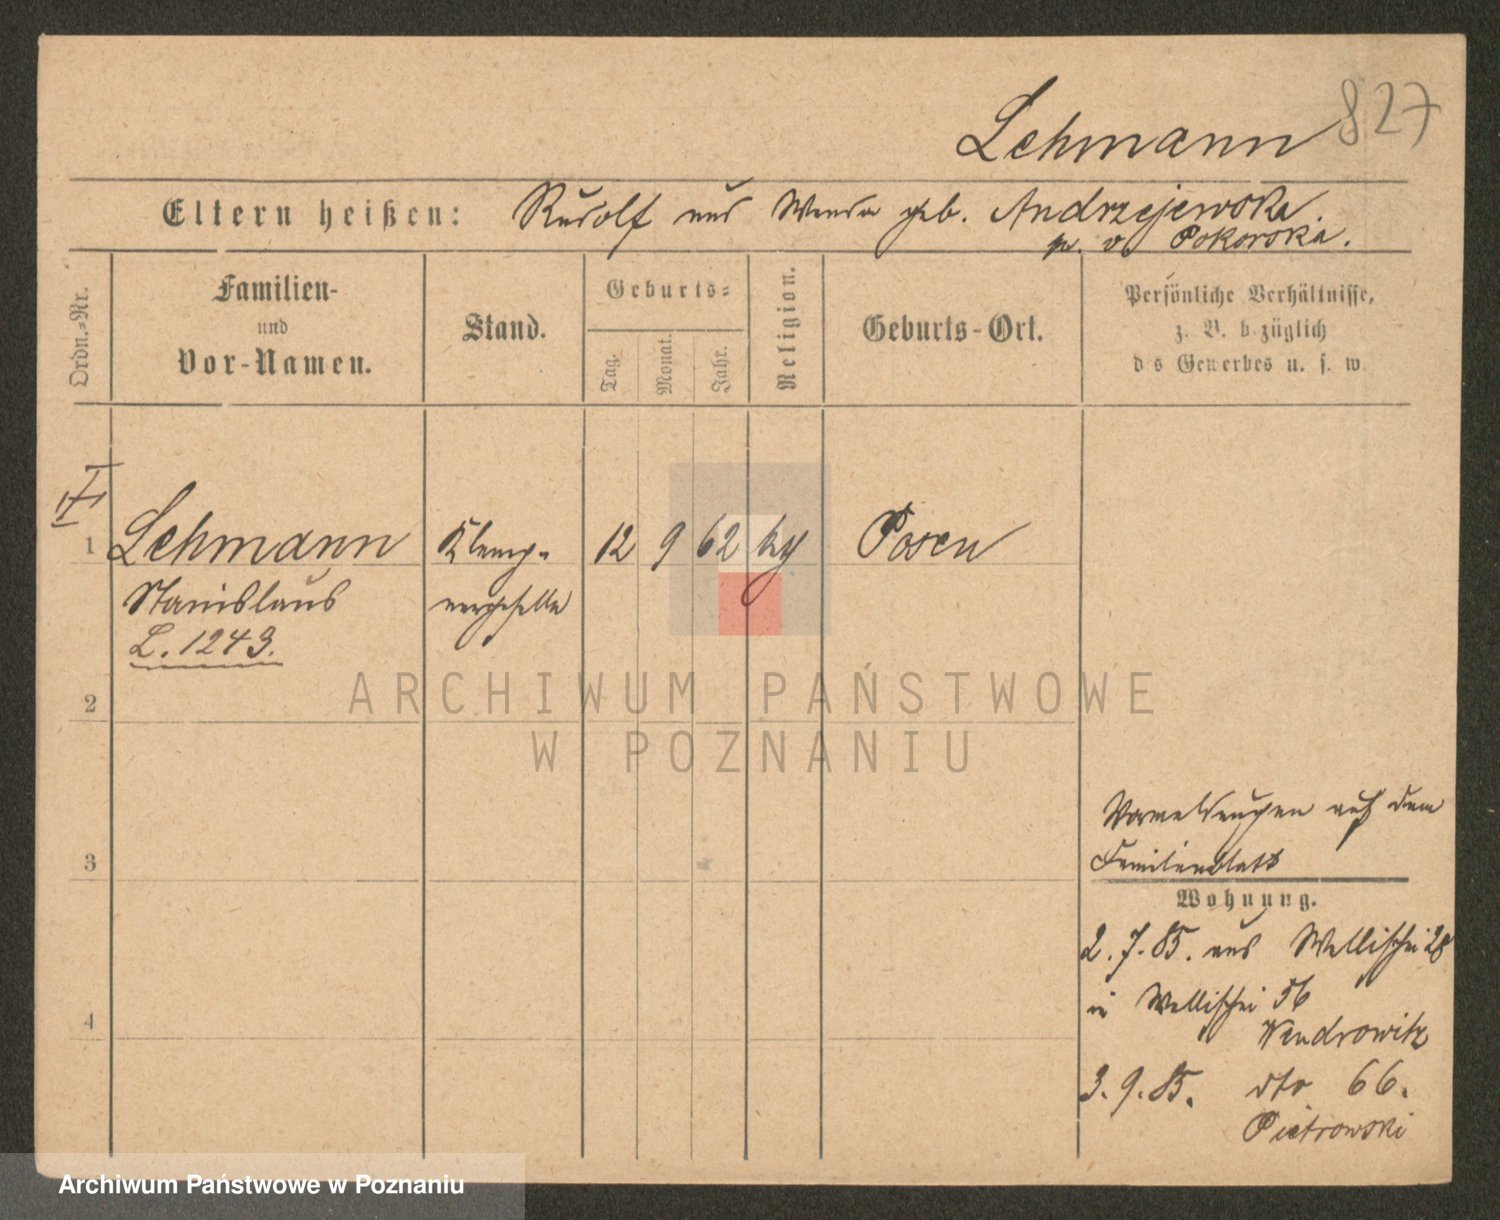 Lehmann 827
Eltern heißen: Rudolf und Wanda geb. Andrzejewska.
Pokorska.
Ordn.-Nr.
Familien-
und
Vor-Namen.
Stand.
Geburts-
Tag.
Monat.
Jahr.
Religion.
Geburts-Ort.
Persönliche Verhältnisse,
z. B. bezüglich
des Gewerbes u. s. w.
1 Lehmann Klemp- 12 9 62 kg Posen
Stanislaus nergeselle
L. 1243.
2
ARCHIWUM PAŃSTWOWE
W POZNANIU
Vormeldungen auf dem
3 Familienblatt
Wohnung.
2. 7. 85. aus Wallischei 28
in Wallischei 56
4 Wendrowitz
3. 9. 85. dto 66.
Pietrowski
Archiwum Państwowe w Poznaniu